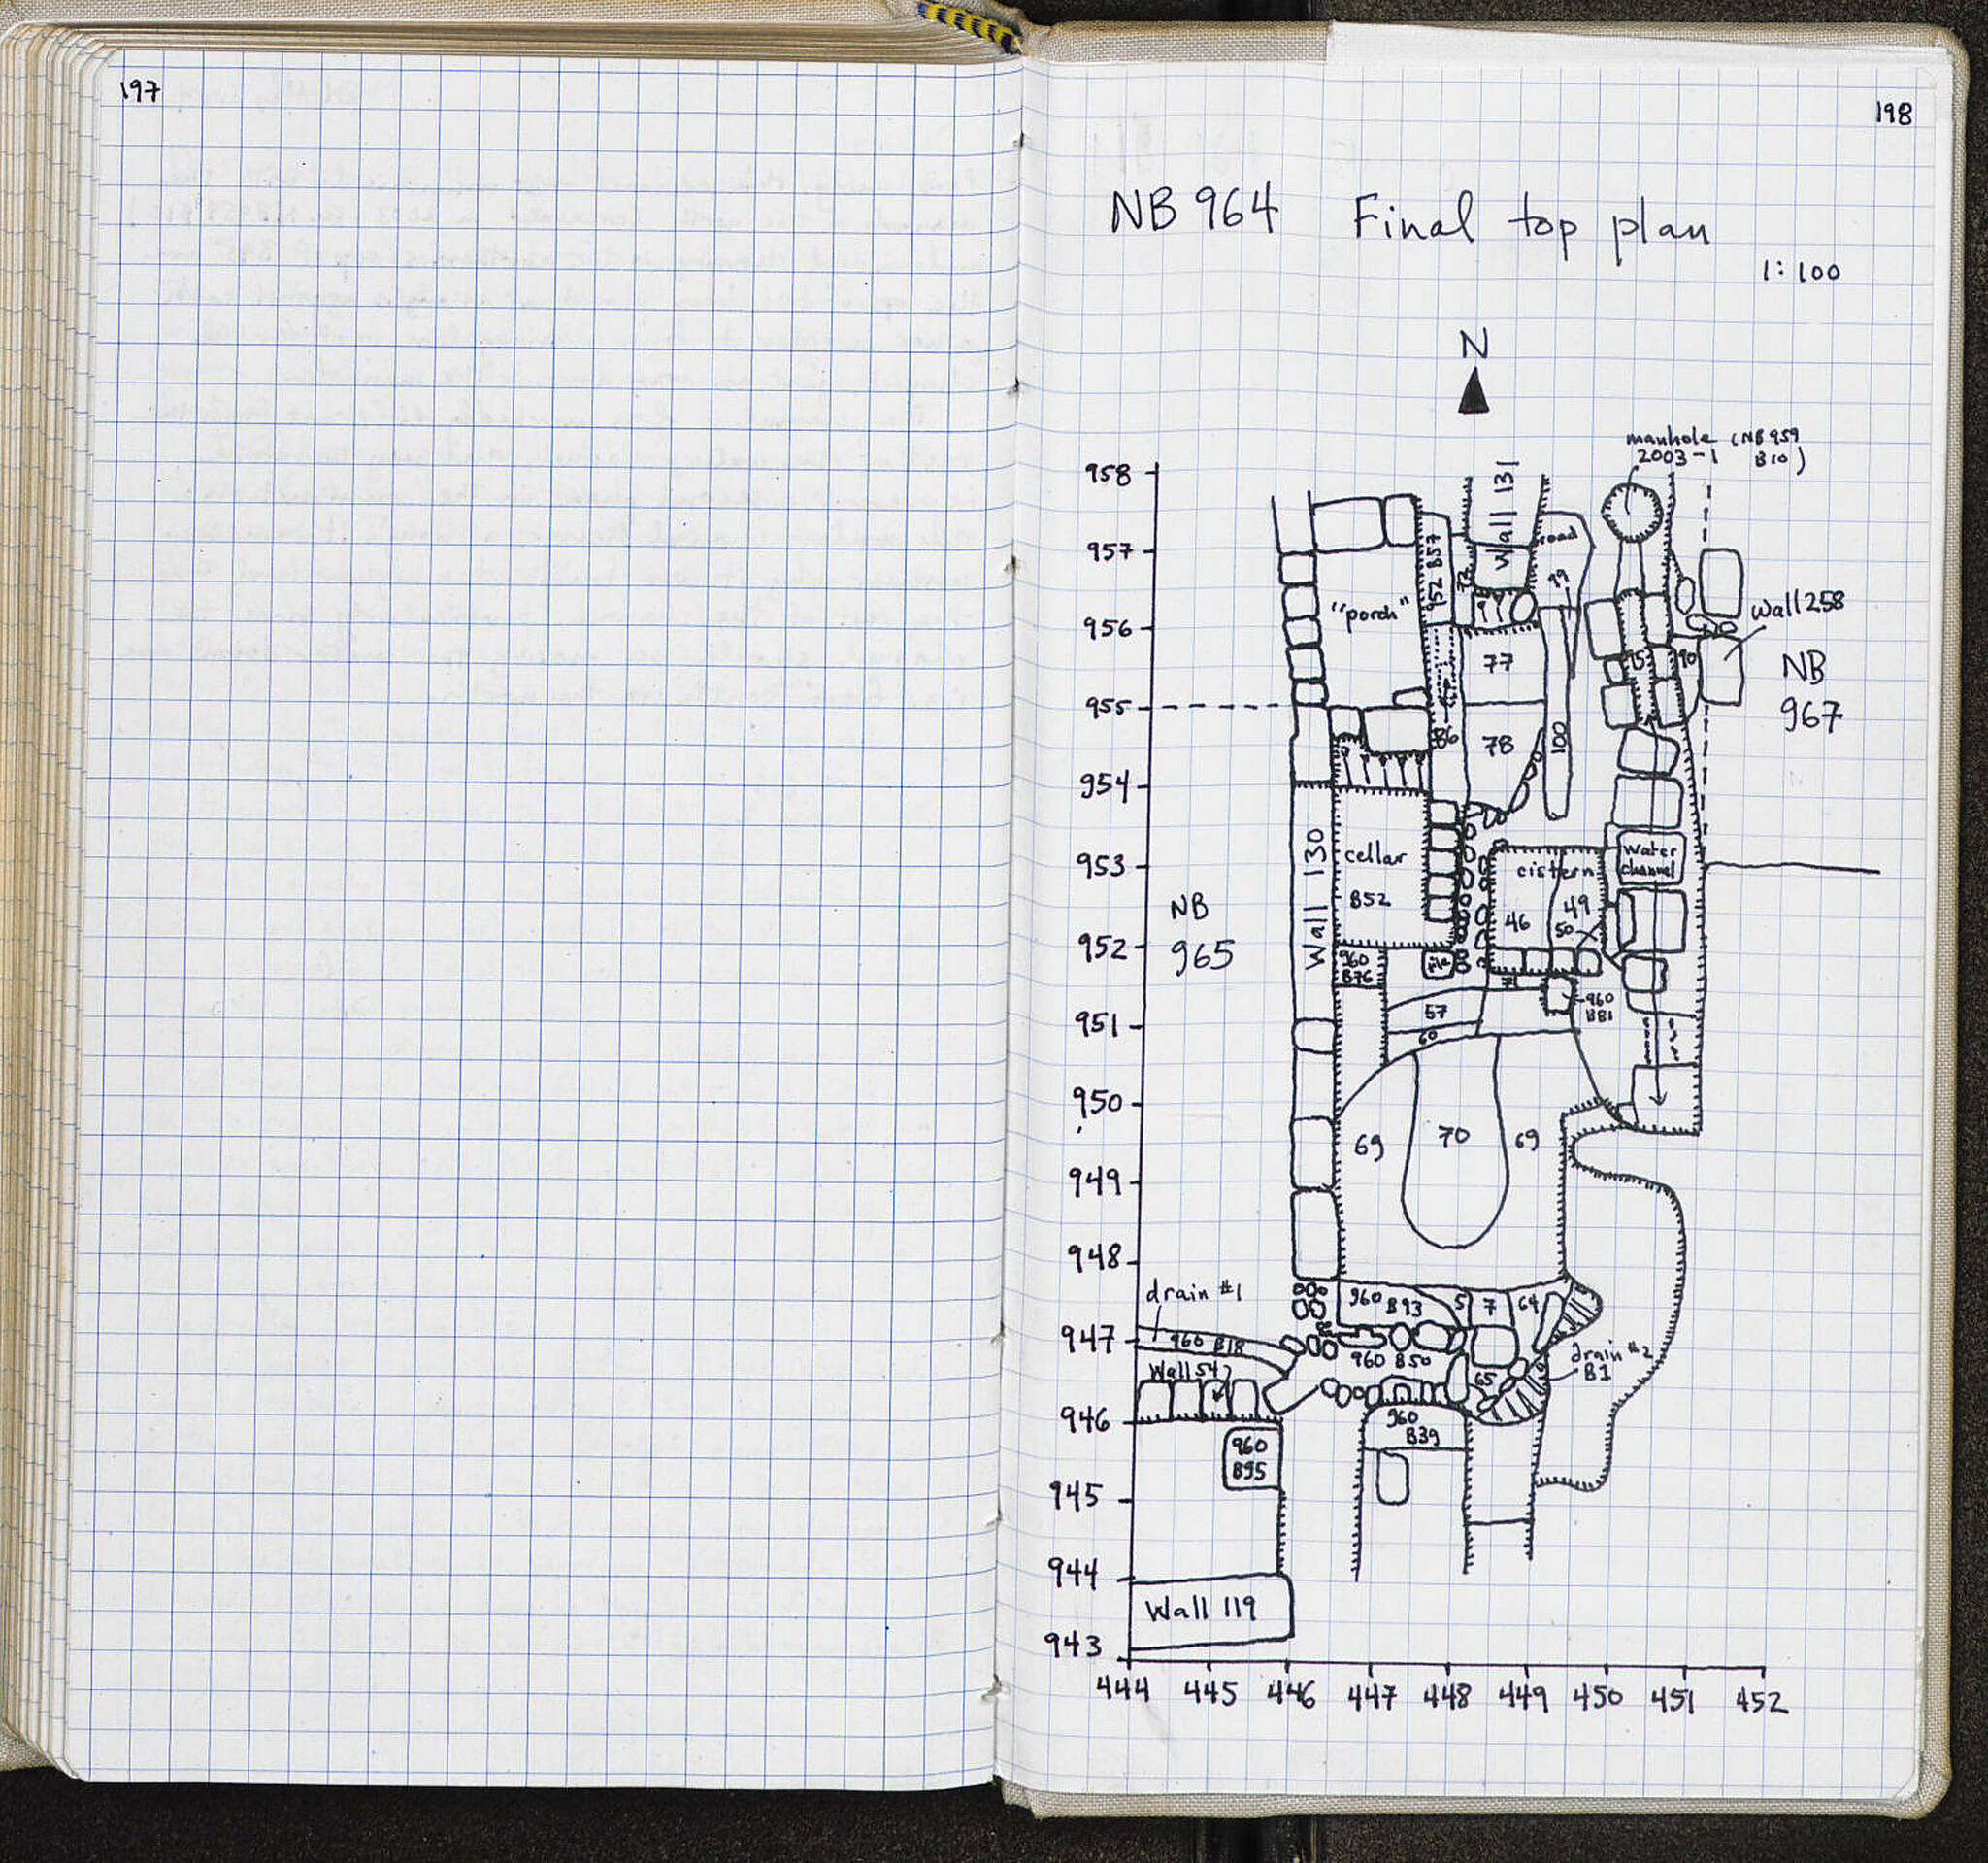 197
198
NB 964 Final top plan
1:100
N
manhole (NB 959
2003-1 B10)
958
957
956
955
954
953
952
951
950
949
948
947
946
945
944
943
Wall 131
road
952 B57
99
"porch"
77
95
90
Wall 258
NB
967
86
78
100
Wall 130
cellar
B52
cistern
46
49
50
water
channel
NB
965
960
B76
57
60
960
B81
69
70
69
drain #1
960 B93
5
7
64
960 B18
960 B50
Wall 54
65
drain #2
B1
960
B39
960
B95
Wall 119
444 445 446 447 448 449 450 451 452